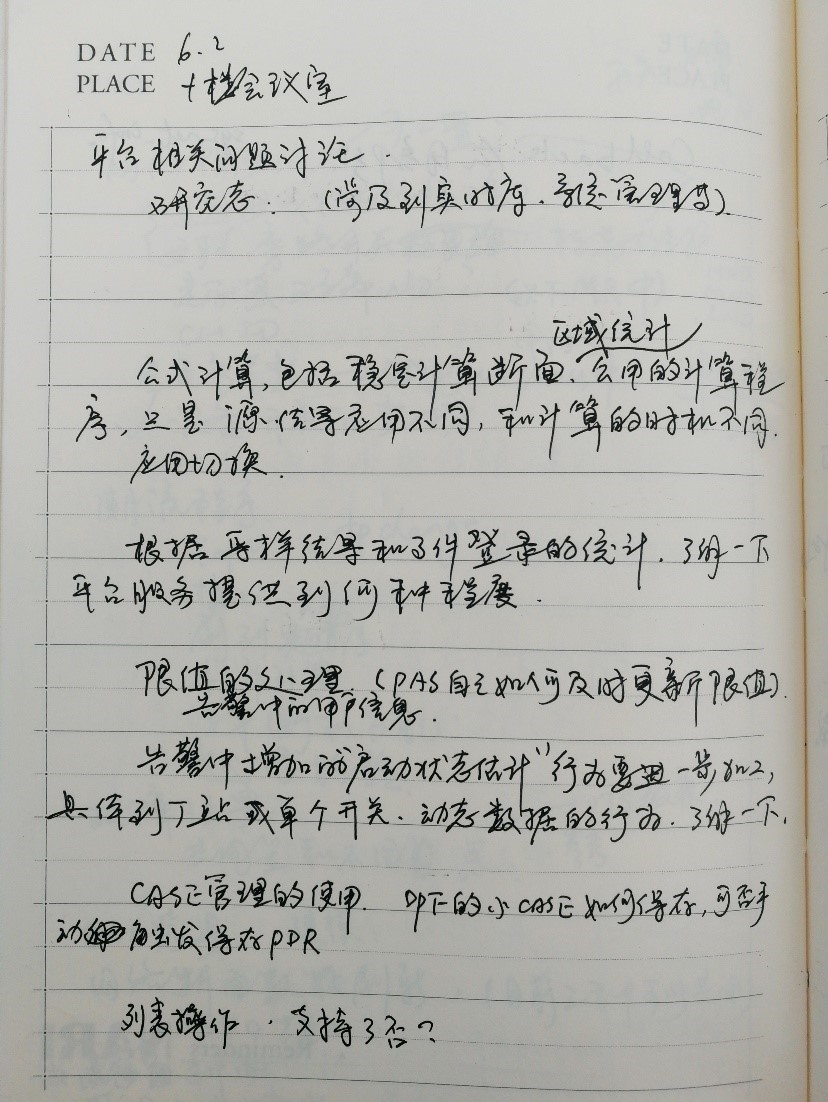 DATE 6.2
PLACE 十楼会议室
平台相关问题讨论.
研究态. (涉及到实时库、系统管理等).
区域统计
公式计算,包括稳定计算断面、公用的计算程
序,只是源结果应用不同,和计算的时机不同.
应用切换.
根据采样结果和事件登录的统计.了解一下
平台服务提供到何种程度.
限值的处理.(PAS自己如何及时更新限值).
告警中的用户信息.
告警中增加的"启动状态估计"行为要进一步加工,
具体到厂站或单个开关.动态数据的行为.了解一下.
CASE管理的使用. DP下的小CASE如何保存,可否手
动触发保存PDR
列表操作.支持了否?